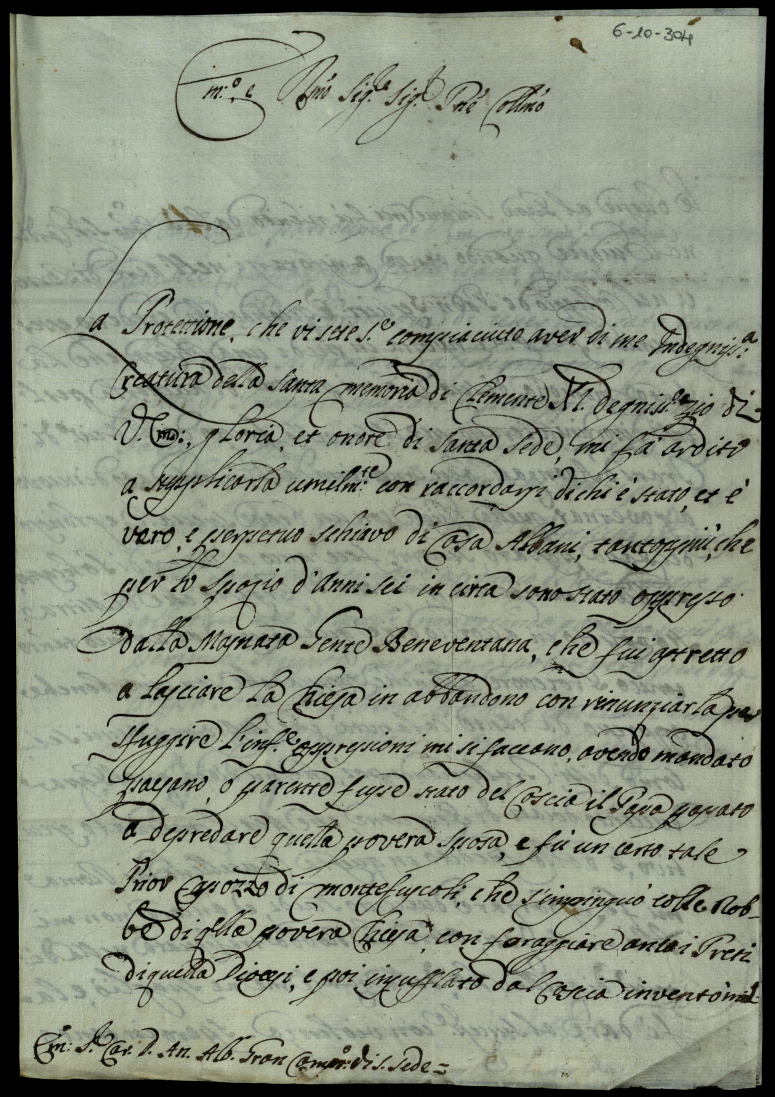 6-10-304
Em:º e Rmº Sig.re Sig.re Pñe Collmo
La Protettione, che vi sete s.e compiaciuto aver di me Indegniss.a
Creatura della Santa memoria di Clemente XI. degniss.o zio di
V. Em:, gloria, et onore di Santa Sede, mi fà ardito
a supplicarla umilm.te con raccordarsi di chi è stato, et è
vero, e perpetuo schiavo di Casa Albani, tantoppiù, che
per lo spazio d'Anni sei in circa sono stato oppresso
dalla Magnata Gente Beneventana, che fui astretto
a lasciare la Chiesa in abbandono con rinunziarla per
sfuggire l'inf.e oppressioni mi si faceano, avendo mandato
paesano, o parente fusse stato del Coscia il Papa passato
a depredare quella povera sposa, e fù un certo tale
Prior Capozzo di Montefuscoli, che s'impinguò colle Rob-
be di q.lla povera Chiesa, con foraggiare anco i Preti
di quella Diocesi, e poi insufflato dal Coscia inventò mil-
Em: S.r Car. D. An. Alb. Gran Camer.º di S. Sede =